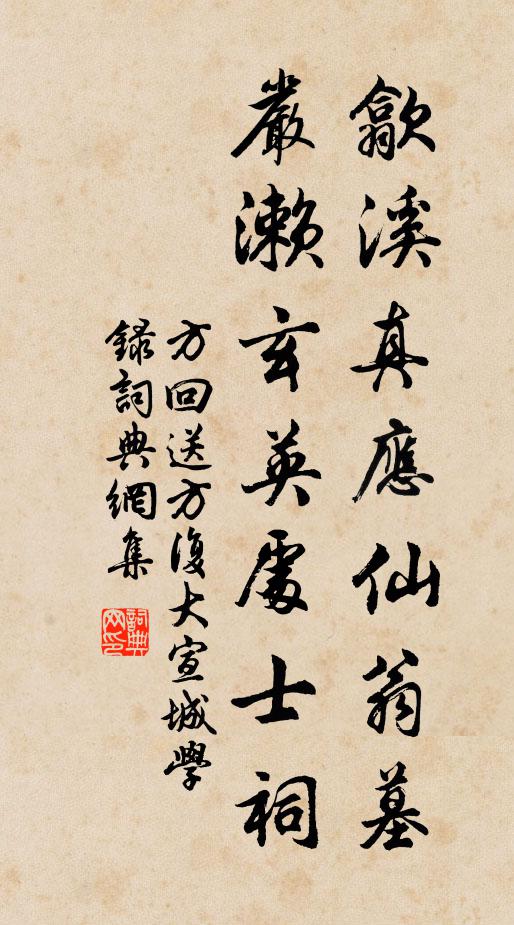 歙溪真應仙翁墓
嚴瀨玄英處士祠
方回送方復大宣城學
錄詞典網集
詞典網印